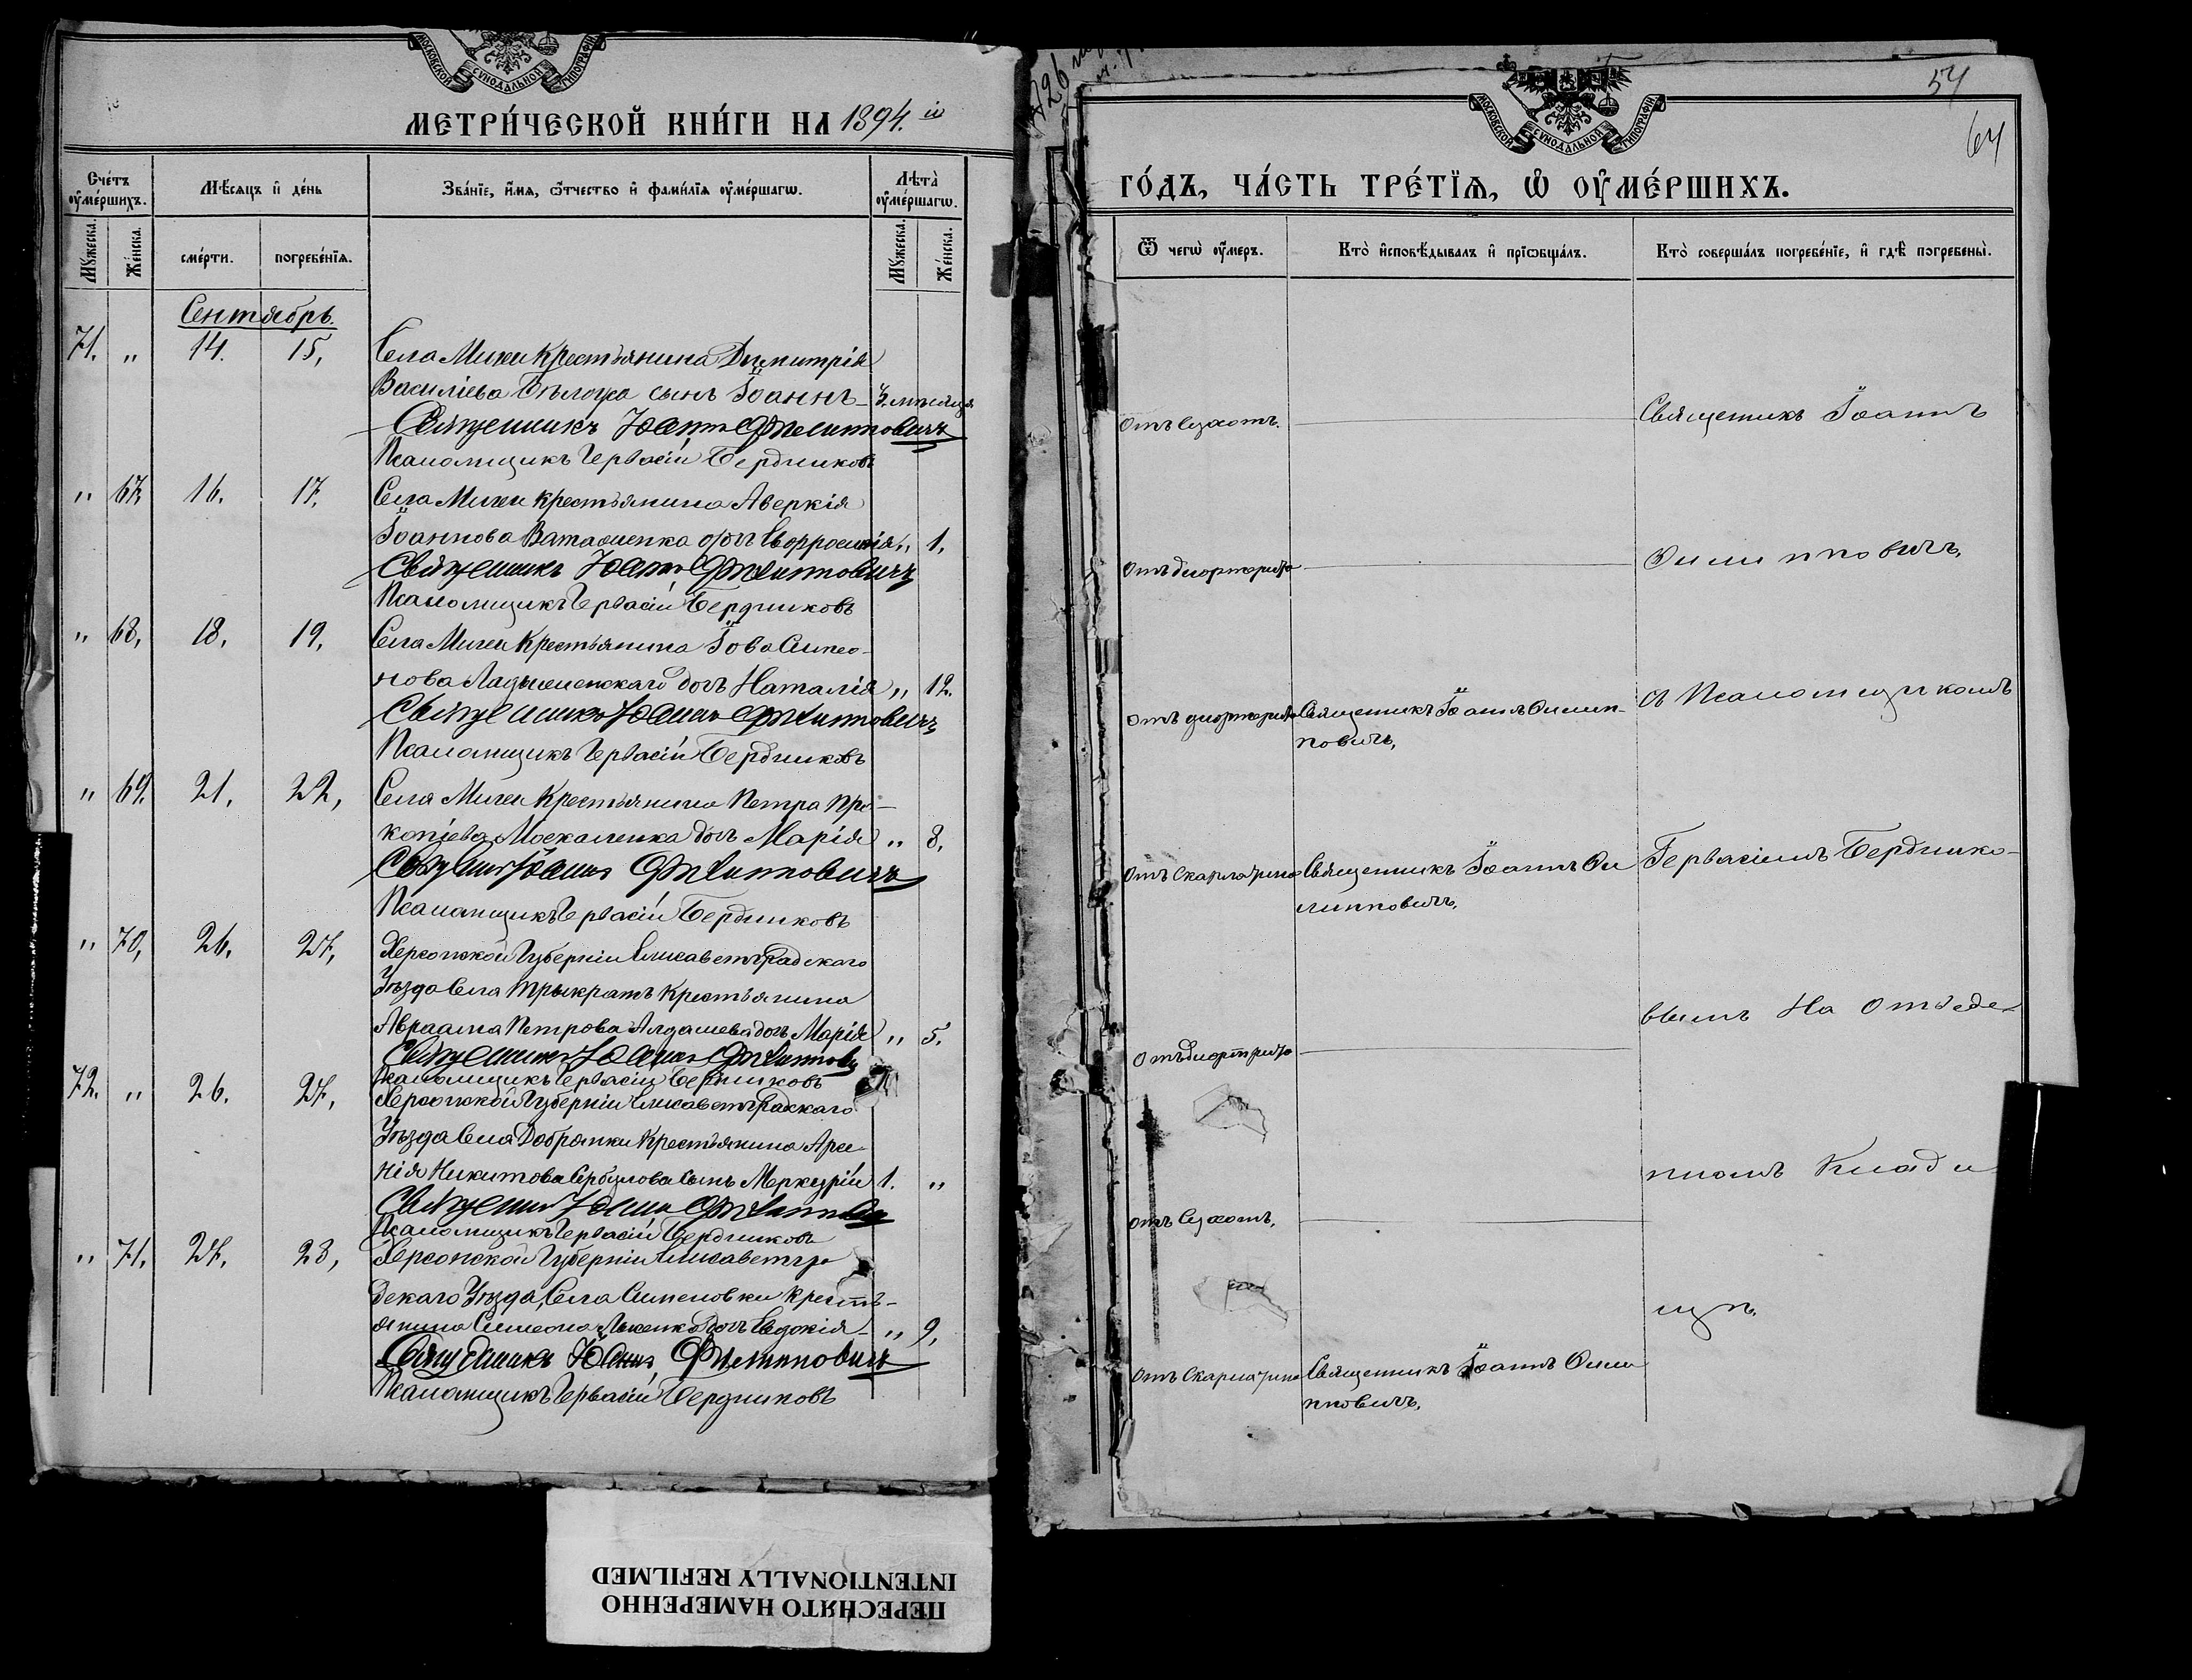 МОСКОВСКОЙ СѴНОДАЛЬНОЙ ТИПОГРАФІИ
МЕТРИ́ЧЕСКОЙ КНИ́ГИ НА 1894.й
Сче́тъ ѹ҆ме́ршихъ.
Мѣ́сяцъ и҆ де́нь
Зва́нїе, и҆́мя, ѻ҆́тчество и҆ фами́лїя ѹ҆ме́ршагѡ.
Лѣ́та ѹ҆ме́ршагѡ.
Мꙋ́жеска.
Же́нска.
сме́рти.
погребе́нїя.
Мꙋ́жеска.
Же́нска.
Сентябрь.
71. „ 14. 15, Села Мигеи Крестьянина Димитрія
Василіева Бѣлоуса сынъ Іоаннъ 3. мѣсяца
Священникъ Іоаннъ Филипповичъ
Псаломщикъ Гервасій Бердниковъ
„ 67, 16. 17. Села Мигеи крестьянина Аверкія
Іоаннова дочь Евфросинія „ 1.
Священникъ Іоаннъ Филипповичъ
Псаломщикъ Гервасій Бердниковъ
„ 68, 18, 19, Села Мигеи Крестьянина Іова Симео-
нова Ладыженскаго дочь Наталія „ 12.
Священникъ Іоаннъ Филипповичъ
Псаломщикъ Гервасій Бердниковъ
„ 69. 21, 22, Села Мигеи Крестьянина Петра Про-
копіева Москаленка дочь Марія „ 8,
Священникъ Іоаннъ Филипповичъ
Псаломщикъ Гервасій Бердниковъ
„ 70, 26, 27, Херсонской Губерніи Елисаветградскаго
Уѣзда Села Трыкратъ Крестьянина
Авраама Петрова дочь Марія „ 5.
Священникъ Іоаннъ Филиппов
Псаломщикъ Гервасій Бердниковъ
72. „ 26. 27, Херсонской Губерніи Елисаветградскаго
Уѣзда Села Добрянки Крестьянина Арсе-
нія Никитова Сербулова сынъ Меркурій 1. „
Священникъ Іоаннъ
Псаломщикъ Гервасій Бердниковъ
„ 71. 27, 28, Херсонской Губерніи Елисаветгра
дскаго Уѣзда, Села Сименовки Кресть-
янина Симеона дочь Евдокія „ 9,
Священникъ Іоаннъ Филипповичъ
Псаломщикъ Гервасій Бердниковъ
54
64
МОСКОВСКОЙ СѴНОДАЛЬНОЙ ТИПОГРАФІИ
ГО́ДЪ, ЧА́СТЬ ТРЕ́ТЇѦ, Ѡ҆ ОУ҆МЕ́РШИХЪ.
Ѿ чегѡ̀ ѹ҆́меръ.
Кто̀ и҆сповѣ́дывалъ и҆ прїѻбща́лъ.
Кто̀ соверша́лъ погребе́нїе, и҆ гдѣ̀ погребены̀.
отъ Сухотъ.
Священикъ Іоаннъ
отъ дифтерита
Филипповичъ,
отъ дифтерита Священникъ Іоаннъ Филип-
повичъ,
съ Псаломщикомъ
отъ Скарлатины Священникъ Іоаннъ Фи
липповичъ,
Гервасіемъ Берднико-
вымъ На отъведе-
отъ дифтрита
нномъ Клади
отъ Сухотъ,
щѣ.
отъ Скарлатины Священникъ Іоаннъ Фили
пповичъ,
ПЕРЕСНЯТО НАМЕРЕННО
INTENTIONALLY REFILMED